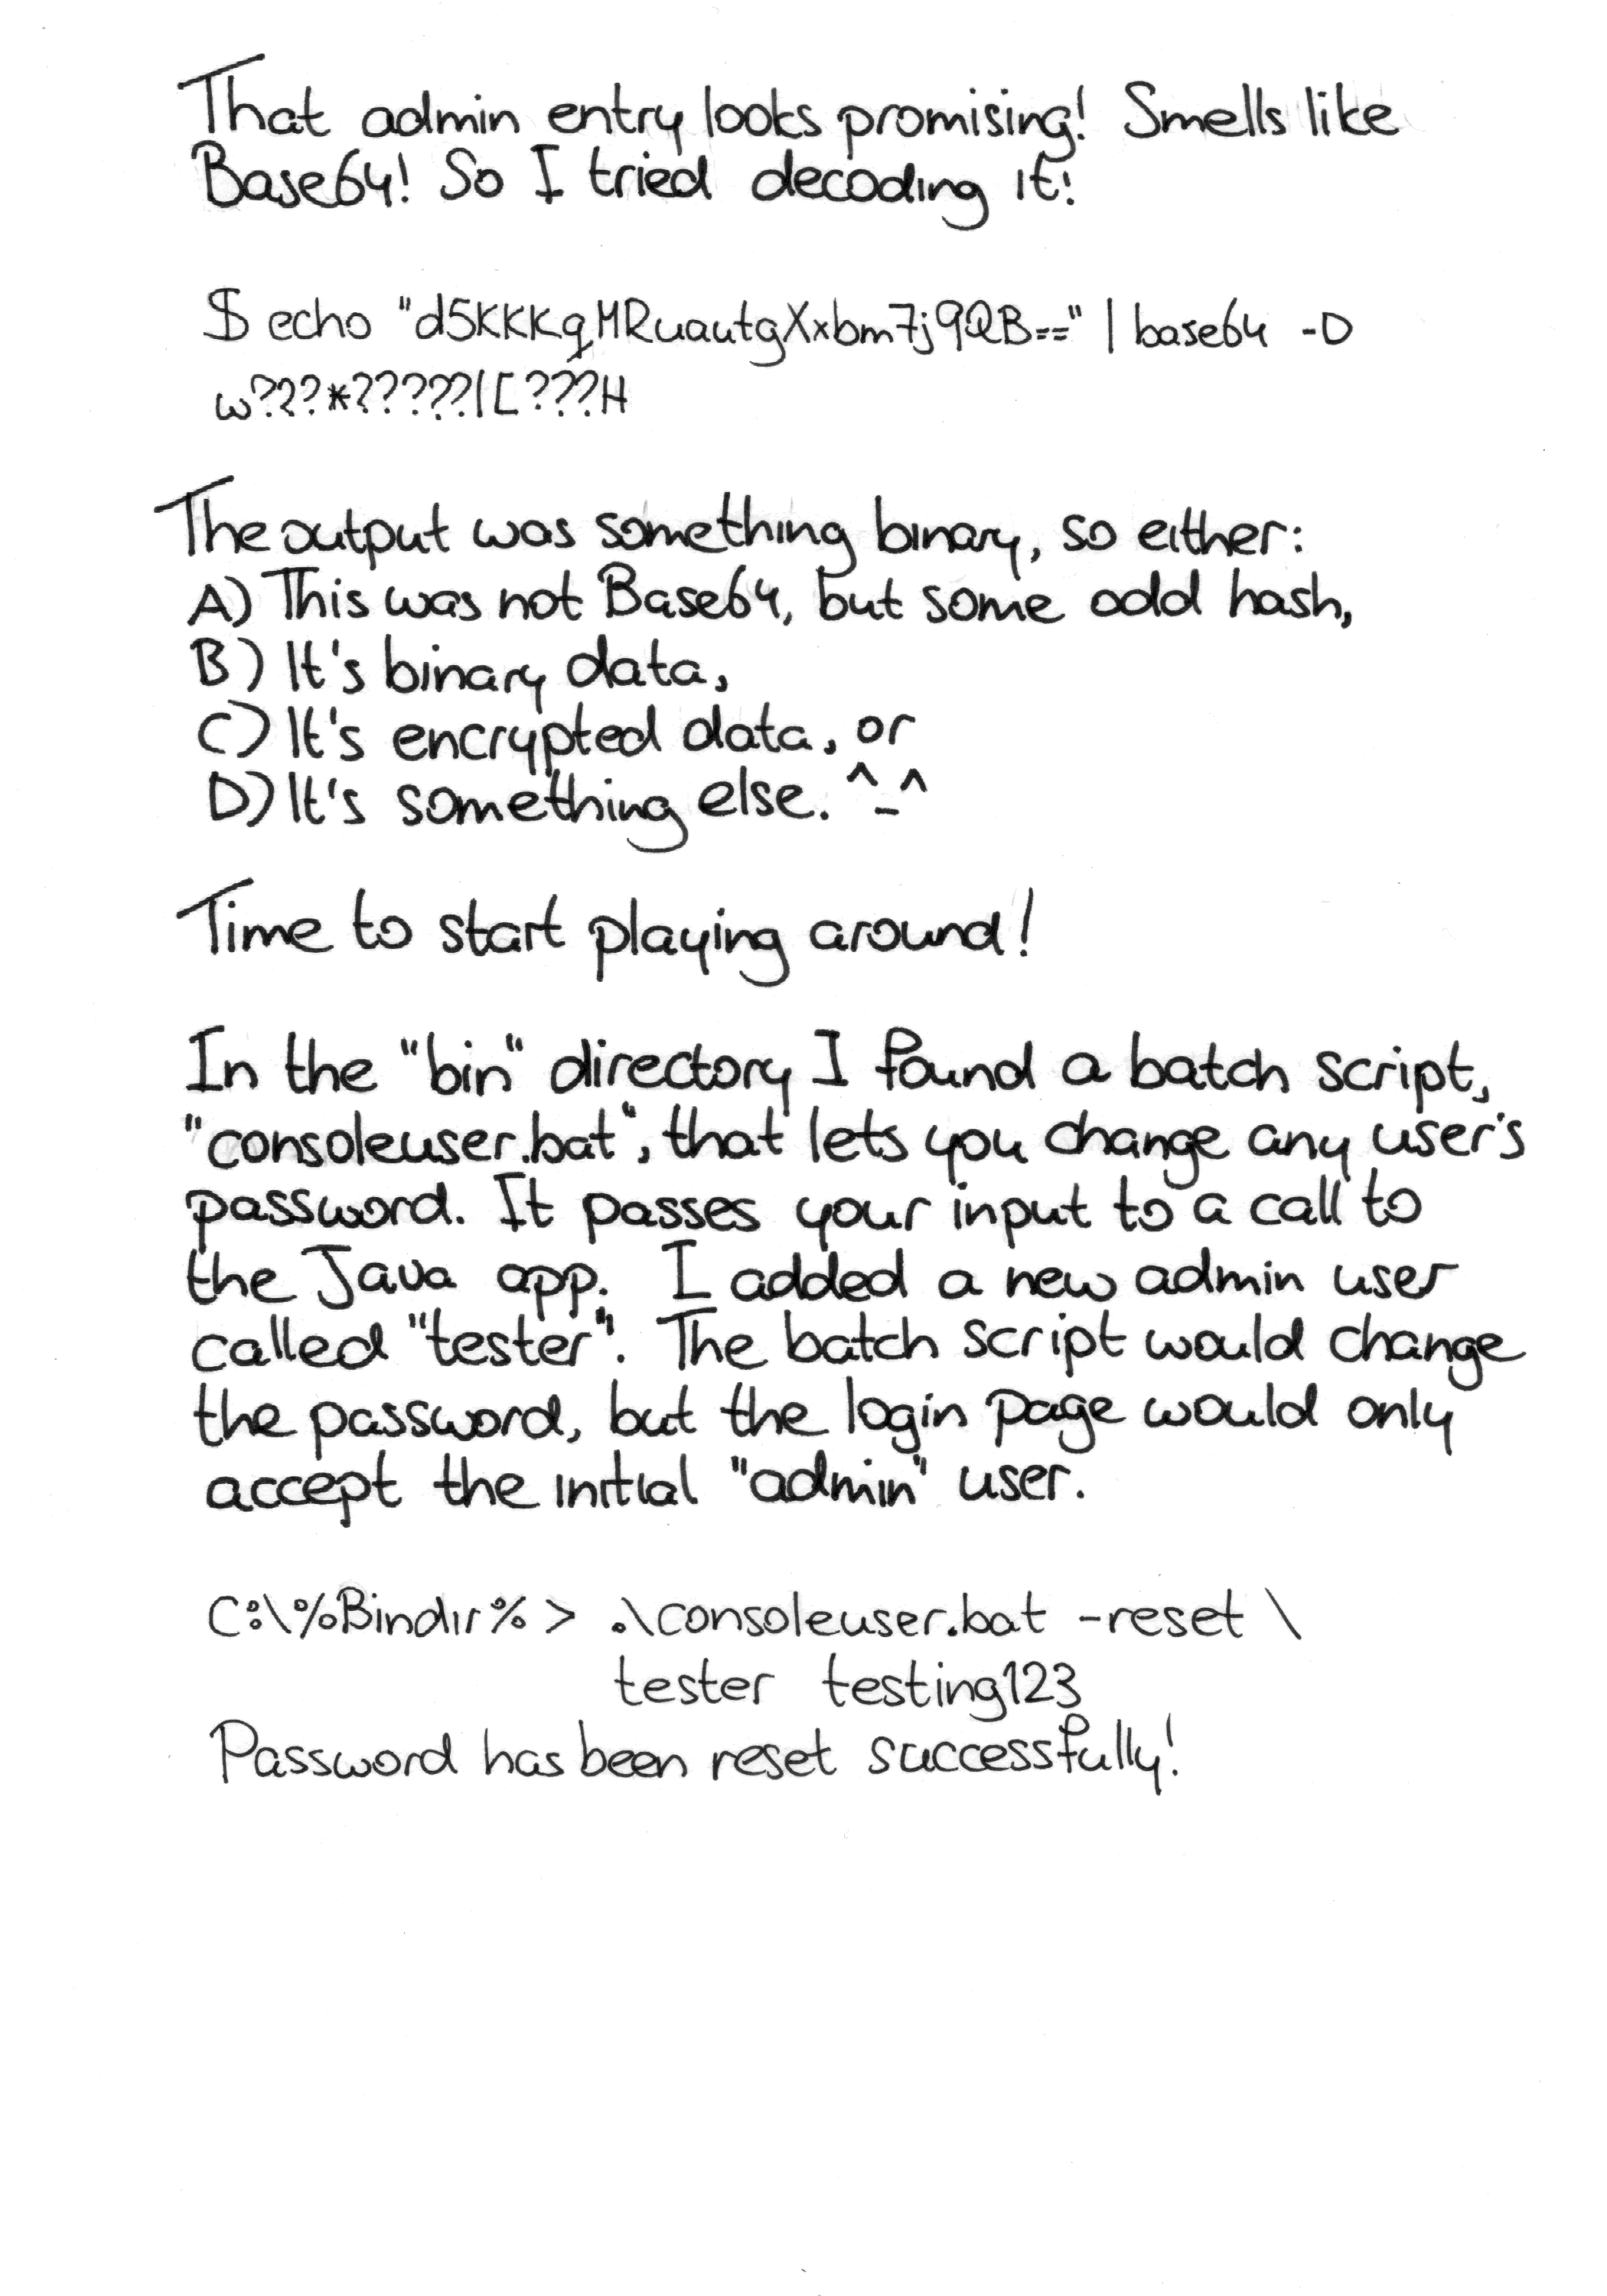 That admin entry looks promising! Smells like
Base64! So I tried decoding it!
$ echo "d5KKKKqMRuautgXxbm7j9QB==" | base64 -D
w???*?????|[???H
The output was something binary, so either:
A) This was not Base64, but some odd hash,
B) It's binary data,
C) It's encrypted data, or
D) It's something else. ^_^
Time to start playing around!
In the "bin" directory I found a batch script,
"consoleuser.bat", that lets you change any user's
password. It passes your input to a call to
the Java app. I added a new admin user
called "tester". The batch script would change
the password, but the login page would only
accept the initial "admin" user.
C:\%Bindir% > .\consoleuser.bat -reset \
tester testing123
Password has been reset successfully!